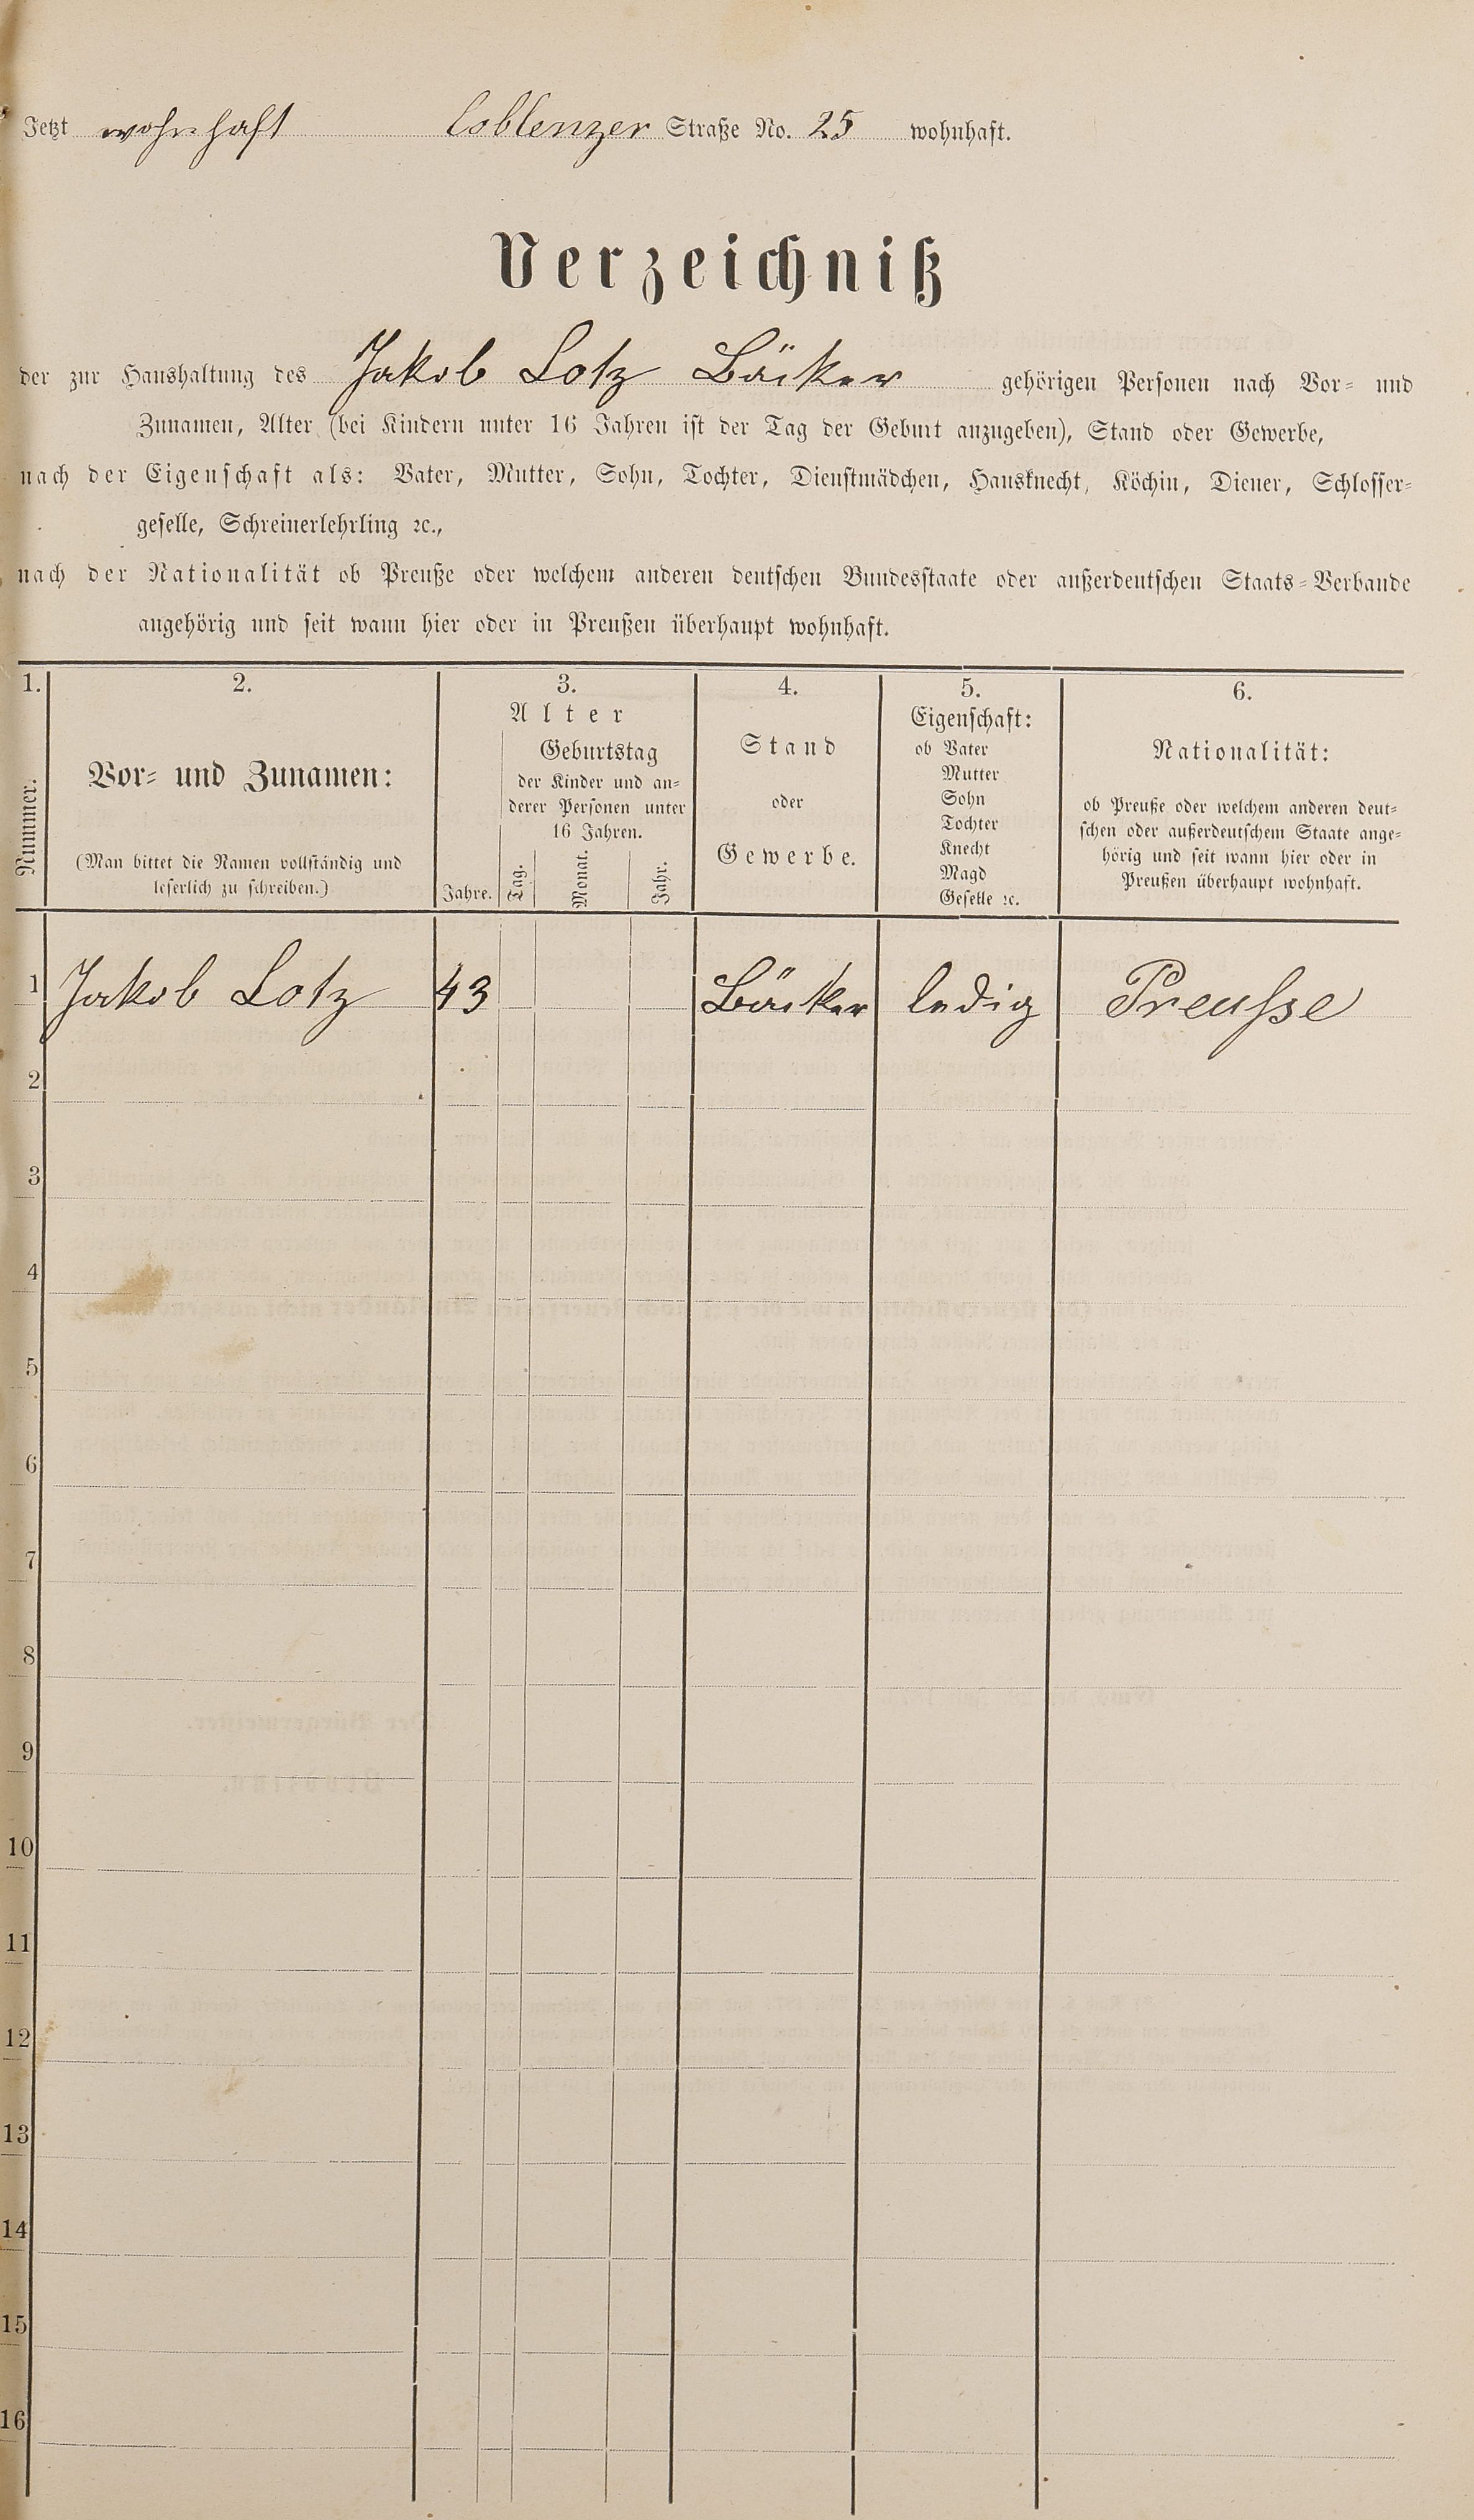 Jetzt wohnhaft Coblenzer Straße No. 25 wohnhaft.
Verzeichniß
der zur Haushaltung des Jakob Lotz Bäcker gehörigen Personen nach Vor- und
Zunamen, Alter (bei Kindern unter 16 Jahren ist der Tag der Geburt anzugeben), Stand oder Gewerbe,
nach der Eigenschaft als: Vater, Mutter, Sohn, Tochter, Dienstmädchen, Hausknecht, Köchin, Diener, Schlosser-
geselle, Schreinerlehrling ꝛc.,
nach der Nationalität ob Preuße oder welchem anderen deutschen Bundesstaate oder außerdeutschen Staats-Verbande
angehörig und seit wann hier oder in Preußen überhaupt wohnhaft.
1.
Nummer.
2.
Vor- und Zunamen:
(Man bittet die Namen vollständig und
leserlich zu schreiben.)
3.
Alter
Jahre.
Geburtstag
der Kinder und an-
derer Personen unter
16 Jahren.
Tag.
Monat.
Jahr.
4.
Stand
oder
Gewerbe.
5.
Eigenschaft:
ob Vater
Mutter
Sohn
Tochter
Knecht
Magd
Geselle ꝛc.
6.
Nationalität:
ob Preuße oder welchem anderen deut-
schen oder außerdeutschem Staate ange-
hörig und seit wann hier oder in
Preußen überhaupt wohnhaft.
1 Jakob Lotz 43 Bäcker ledig Preusse
2
3
4
5
6
7
8
9
10
11
12
13
14
15
16